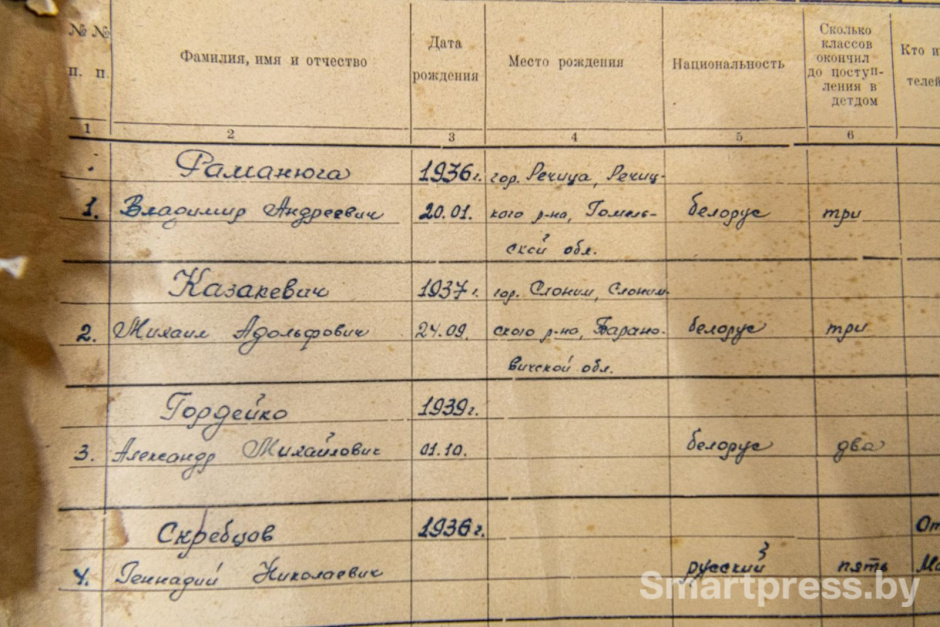 № № п. п.
Фамилия, имя и отчество
Дата рождения
Место рождения
Национальность
Сколько классов окончил до поступ- ления в детдом
Кто и
телей
1 2 3 4 5 6
Раманюга 1936 г. гор. Речица, Речиц-
1. Владимир Андреевич 20.01. кого р-на, Гомель- белорус три
ской обл.
Казакевич 1937 г. гор. Слоним, Слоним-
2. Михаил Адольфович 24.09. ского р-на, Барано- белорус три
вичской обл.
Гордейко 1939 г.
3. Александр Михайлович 01.10. белорус два
Скребцов 1936 г. От
4. Геннадий Николаевич русский пять
Smartpress.by